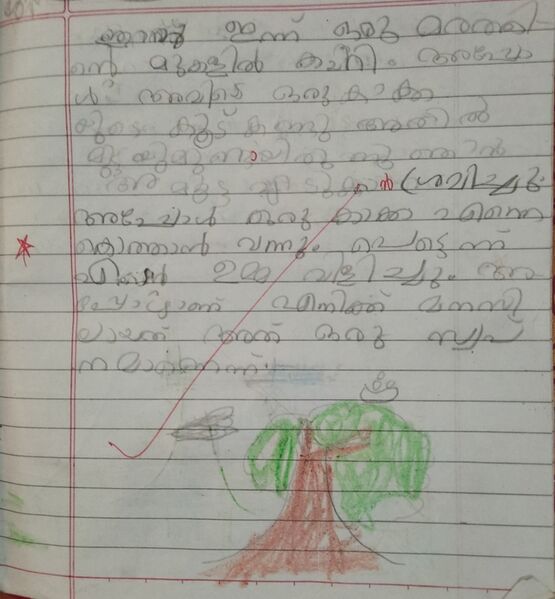 ഞാൻ ഇന്ന് ഒരു മരത്തി
ന്റെ മുകളിൽ കയറി. അപ്പോ
ൾ അവിടെ ഒരു കാക്ക
യുടെ കൂട് കണ്ടു അതിൽ
മുട്ടയുമുണ്ടായിരുന്നു ഞാൻ
ആ മുട്ട എടുക്കാൻ ശ്രമിച്ചു.
അപ്പോൾ ഒരു കാക്ക എന്നെ
കൊത്താൻ വന്നു. പെട്ടെന്ന്
എന്നെ ഉമ്മ വിളിച്ചു. അ
പ്പോഴാണ് എനിക്ക് മനസി
ലായത് അത് ഒരു സ്വപ്
നമാണെന്ന്.